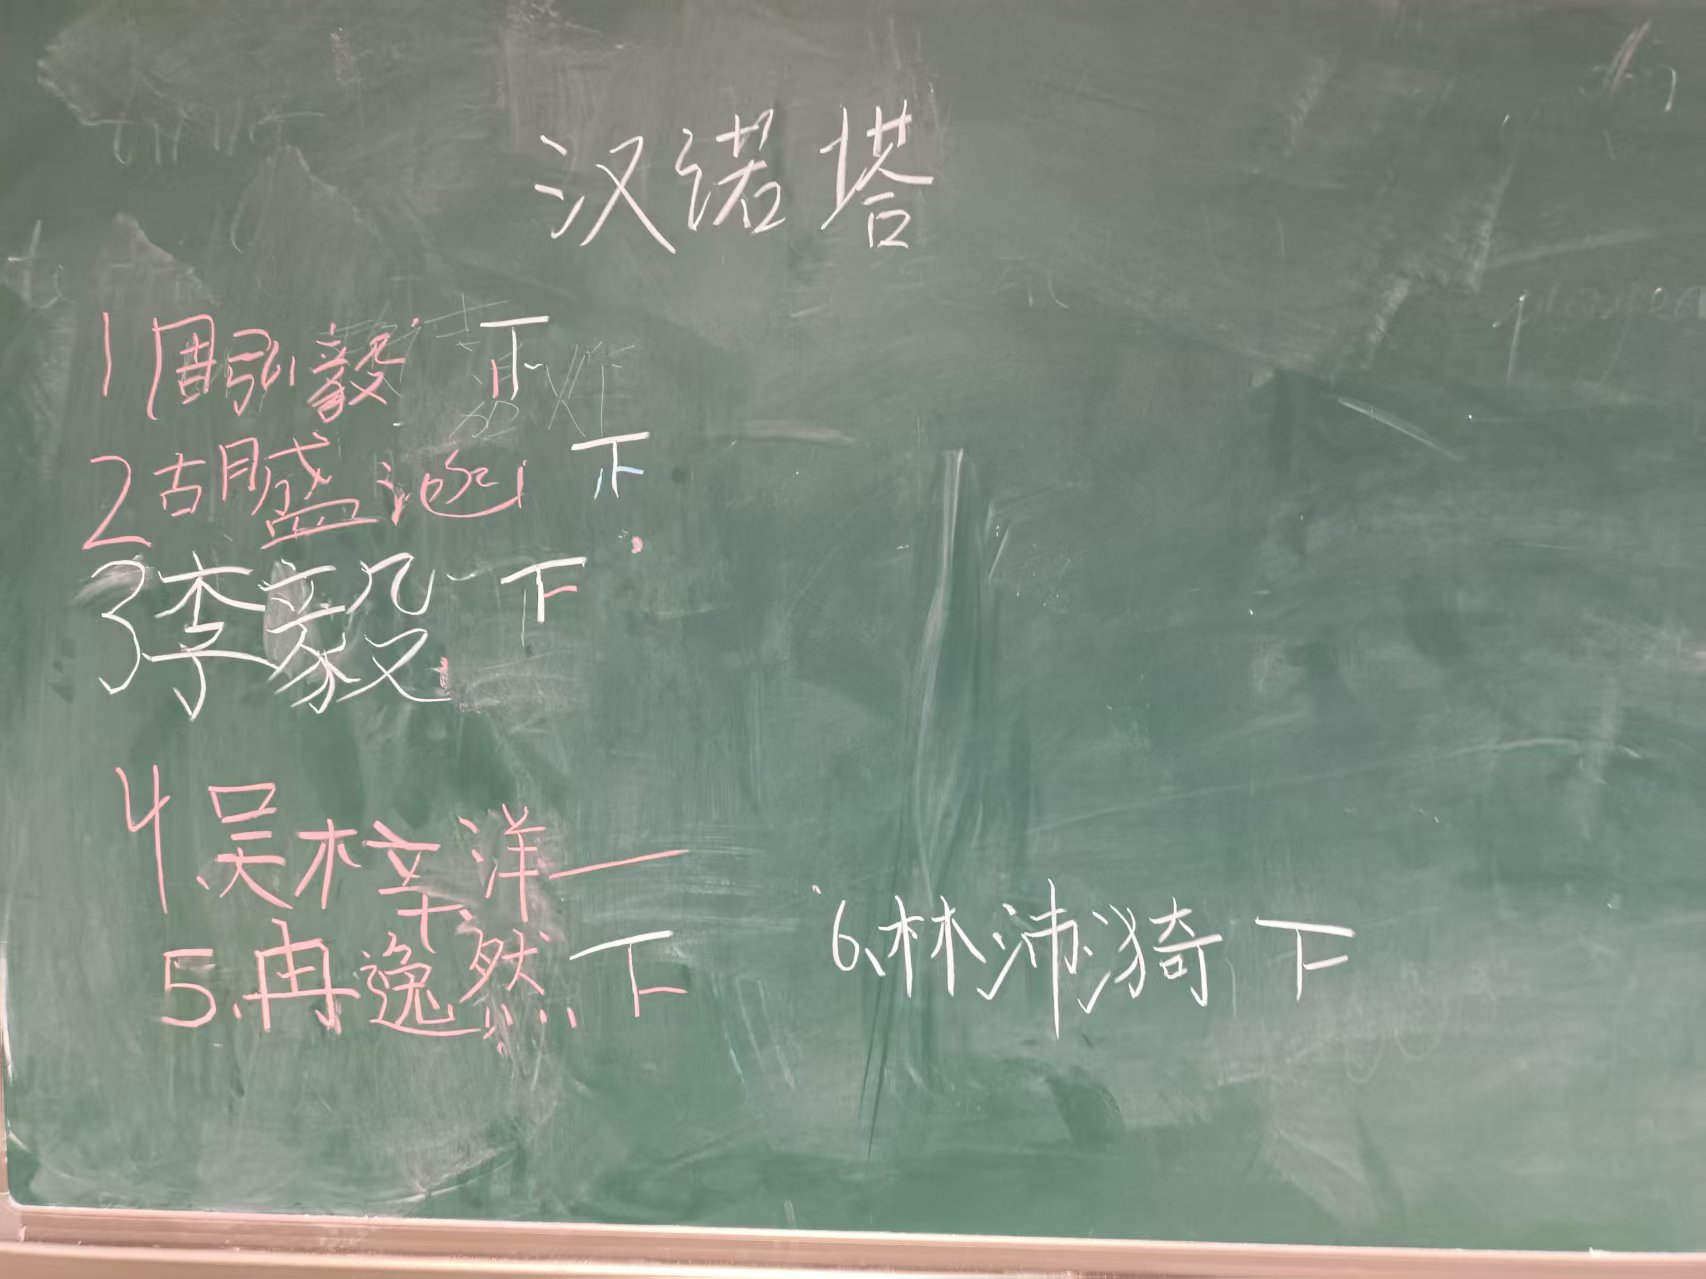 汉诺塔
1周弘毅
2胡盛
3李毅 下
4.吴梓洋 一
5.冉逸然 下
6.林沛漪 下